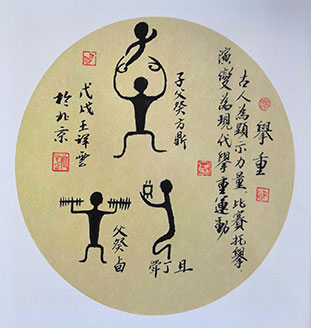 舉重
古人為顯示力量，比賽托舉，
演變為現代舉重運動
子父癸方鼎
父癸卣
且丁斝
戊戌王祥雲
於北京